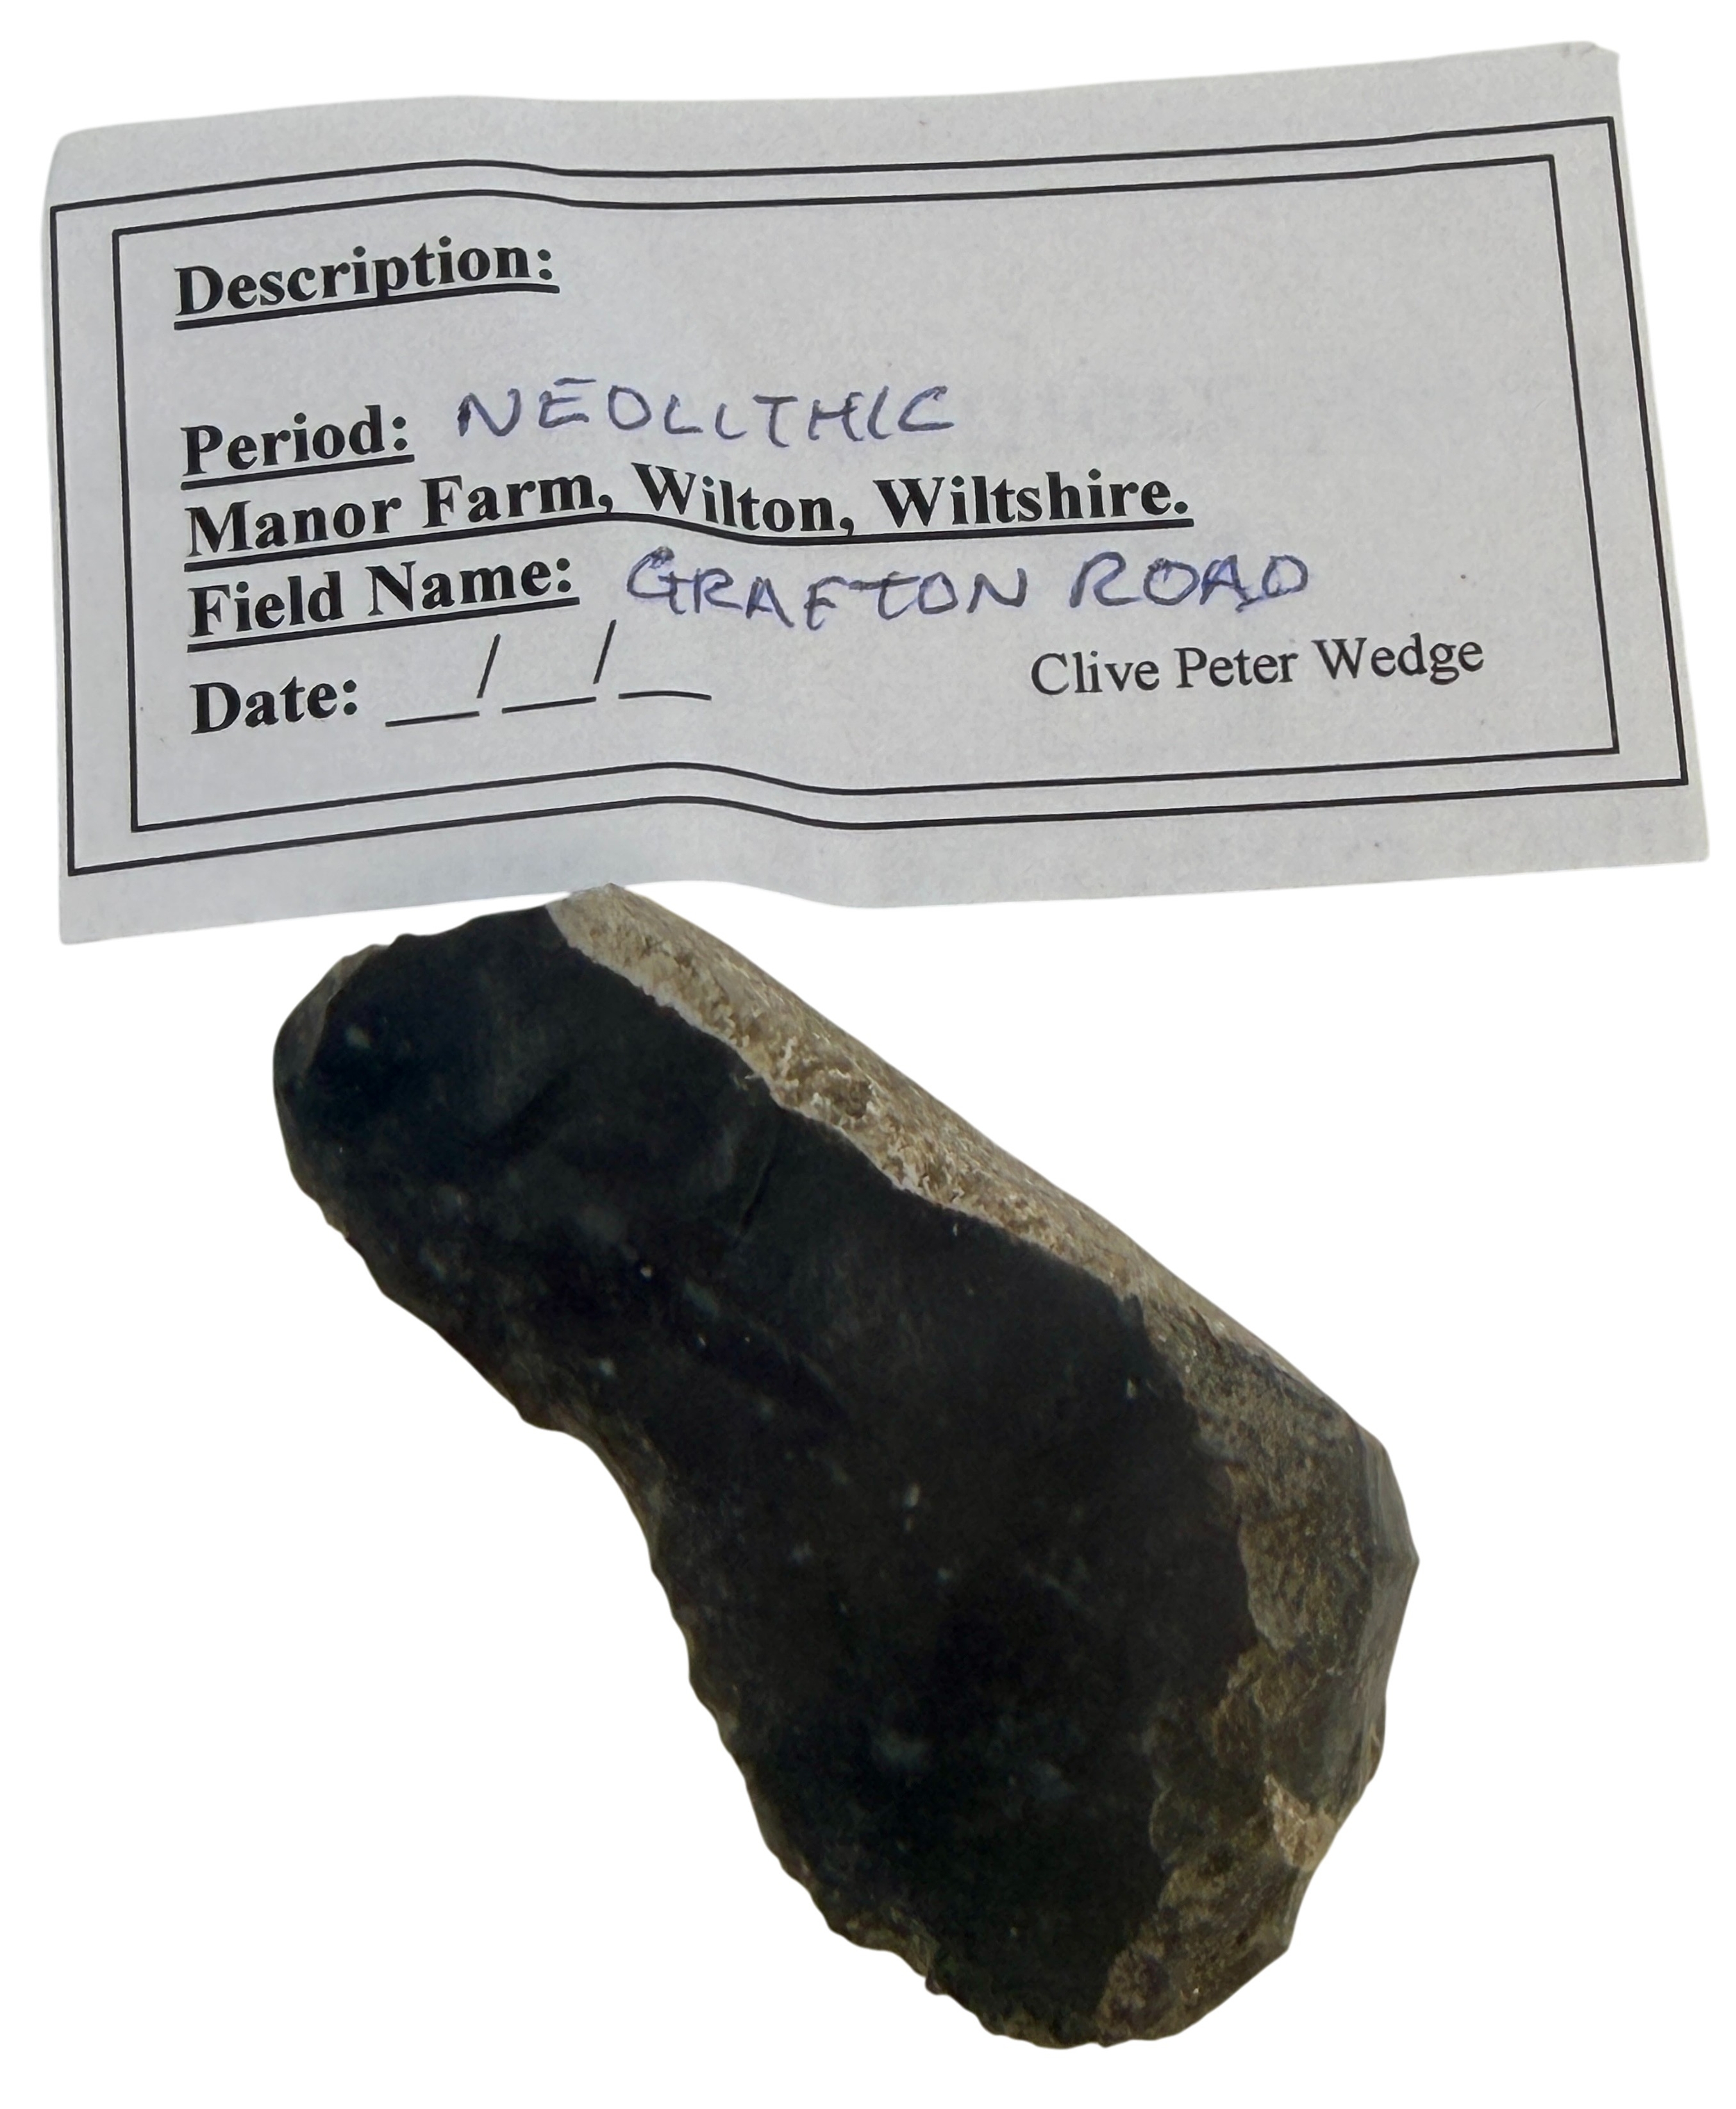 Description:
Period: NEOLITHIC
Manor Farm, Wilton, Wiltshire.
Field Name: GRAFTON ROAD
Date: __/__/__
Clive Peter Wedge